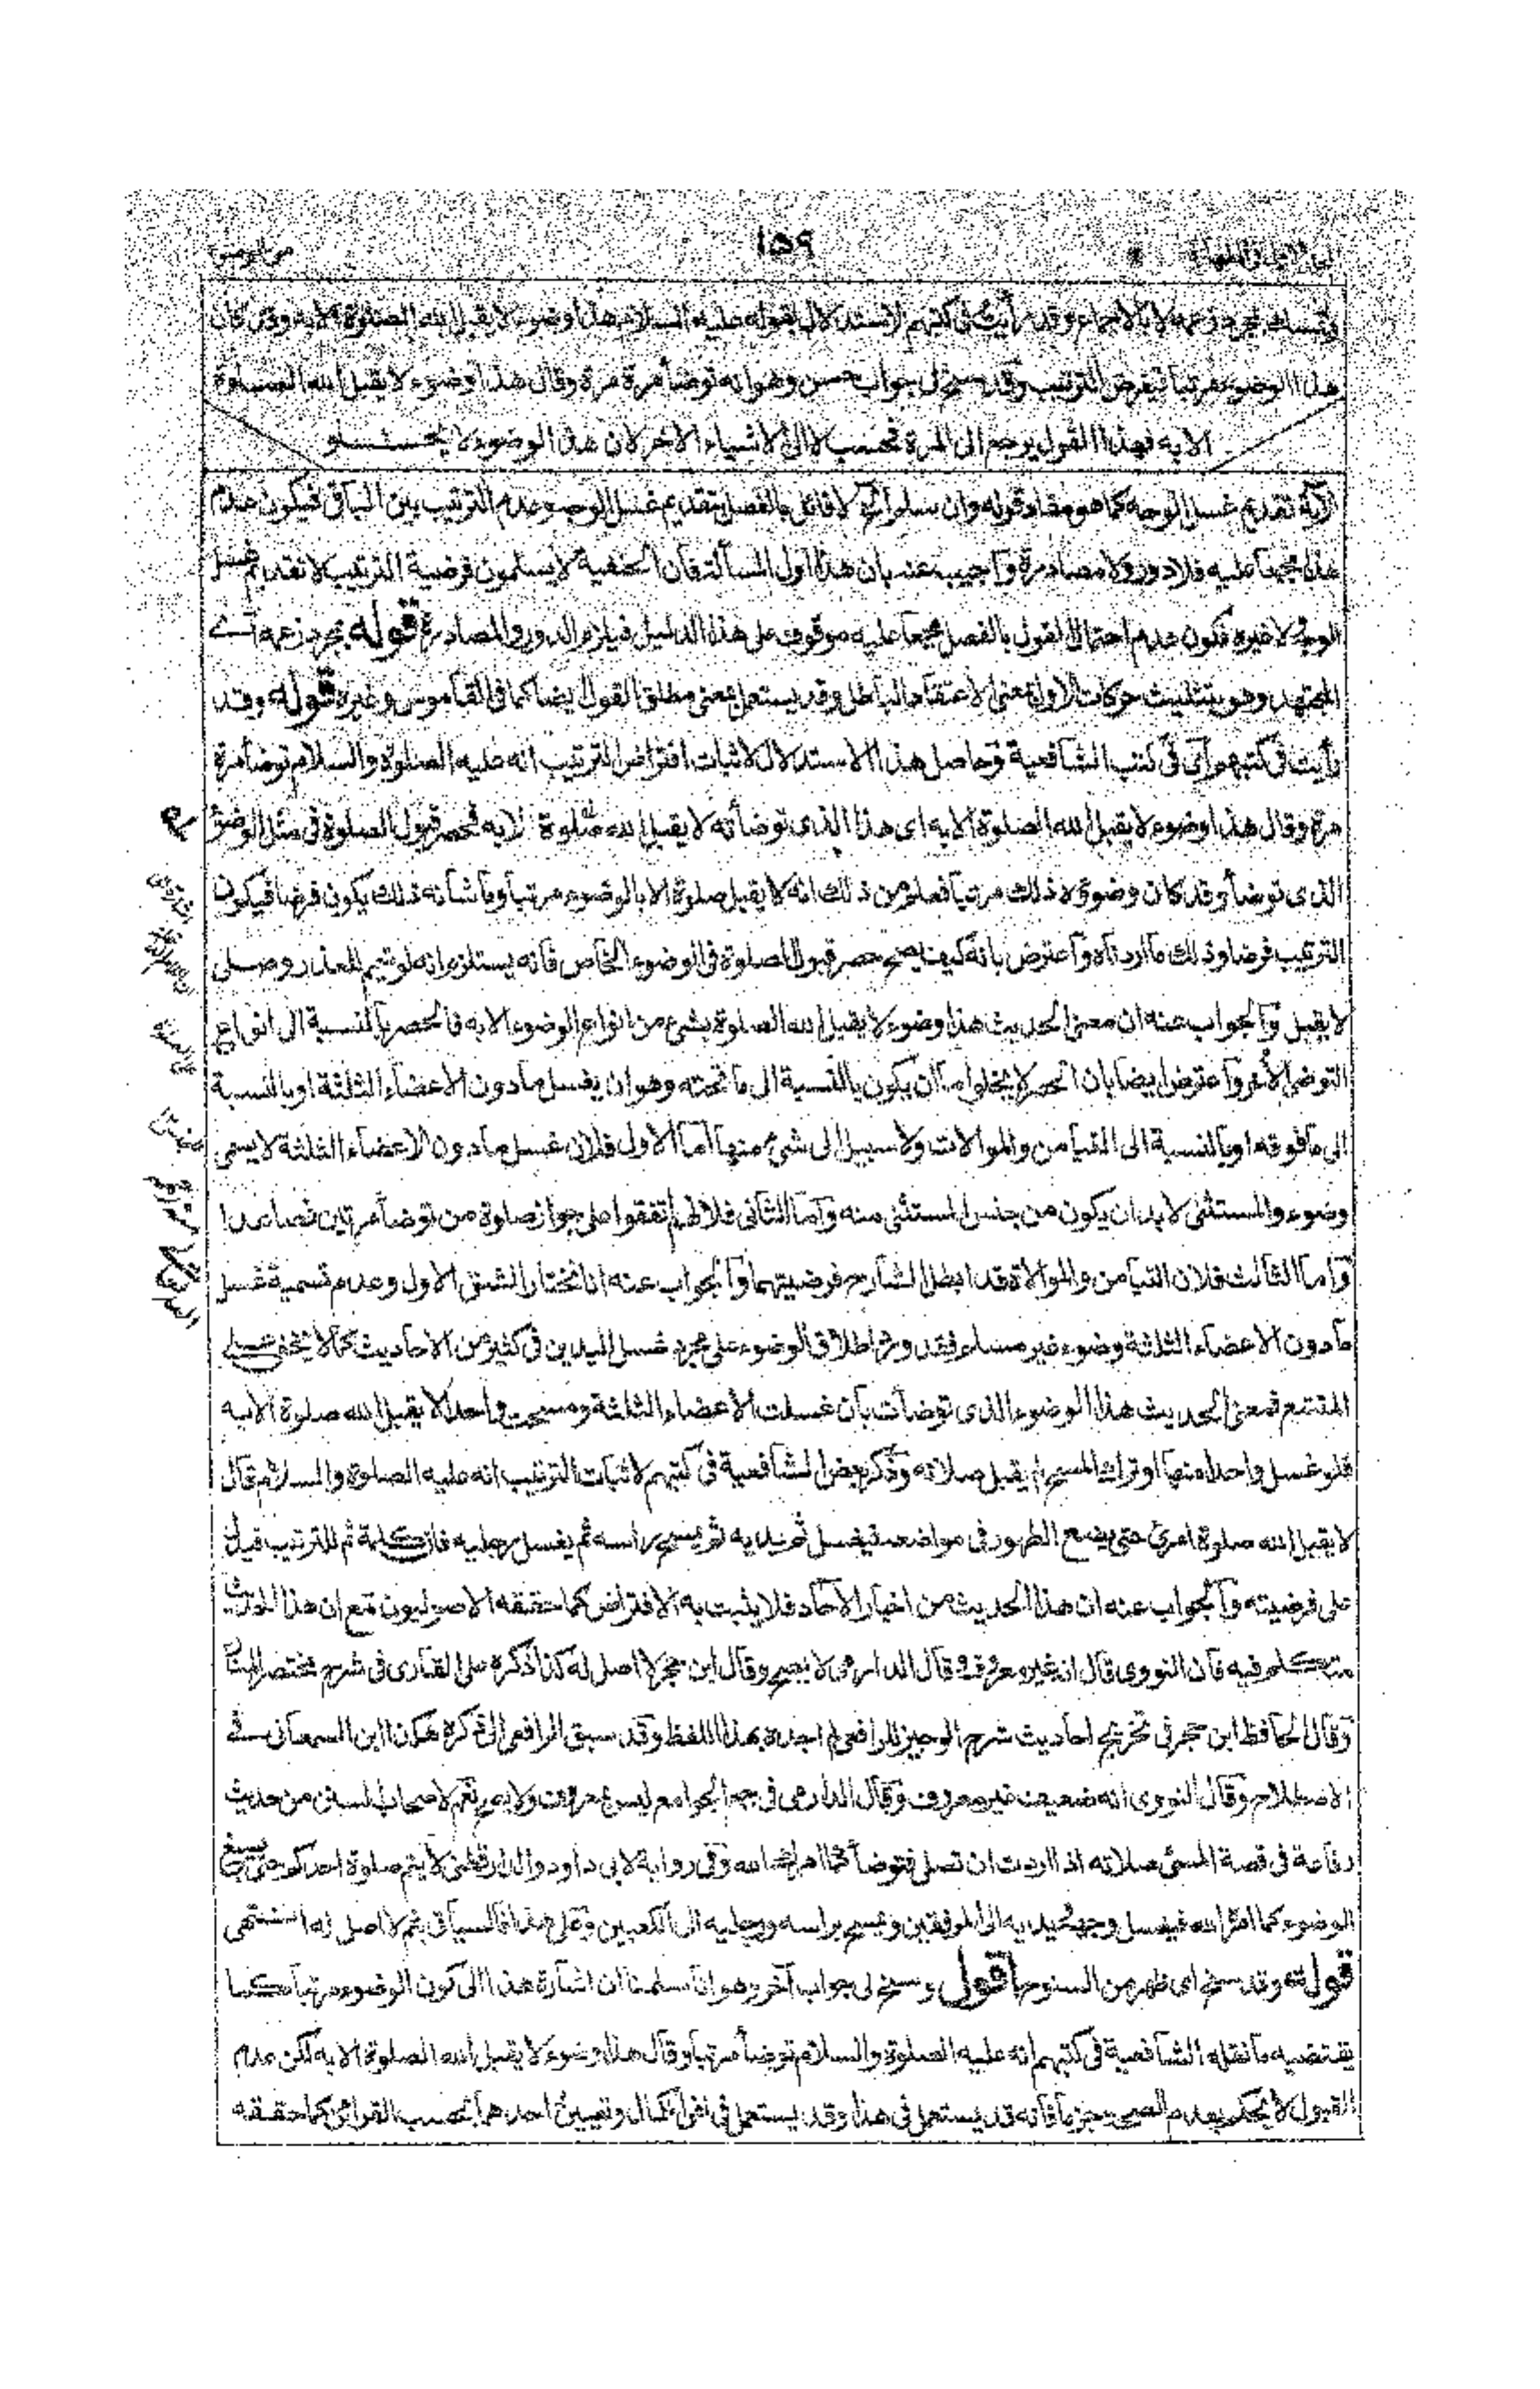 ١٥٩
فتمسك بمجرد زعمه لا بالاجماع وقد رأيت فى كتبهم الاستدلال بقوله عليه السلام هذا وضوء لا يقبل الله الصلوة الا به وقد كان
هذا الوضوء مرتبا فيفرض الترتيب وقد سنح لى جواب حسن وهو انه توضأ مرة مرة وقال هذا وضوء لا يقبل الله الصلوة
الا به فهذا القول يرجع الى المرة فحسب لا الى الاشياء الاخر لان هذا الوضوء لا يخلو
الآية تقديم غسل الوجه كما هو مفاد قوله وان سلم انه لا قائل بالفصل بتقديم غسل الوجه وعدم الترتيب بين الباقى فيكون عدم
هذا مجمعا عليه فلا دور ولا مصادرة وآجيب عنه بان هذا اول المسألة فان الحنفية لا يسلمون فرضية الترتيب لا تقديم غسل
الوجه لا غيره فكون عدم احتمال القول بالفصل مجمعا عليه موقوف على هذا الدليل فيلزم الدور والمصادرة قوله بمجرد زعمه اے
المجتهد وهو بتثليث حركات الاول بمعنى الاعتقاد الباطل وقد يستعمل بمعنى مطلق القول ايضا كما فى القاموس وغيره قوله وقد
رأيت فى كتبهم آى فى كتب الشافعية وحاصل هذا الاستدلال لاثبات افتراض الترتيب انه عليه الصلوة والسلام توضأ مرة
مرة وقال هذا وضوء لا يقبل الله الصلوة الا به اى هذا الذى توضأته لا يقبل الله صلوة الا به فحصر قبول الصلوة فى مثل الوضوء
الذى توضأ وقد كان وضوؤه ذلك مرتبا فعلم من ذلك انه لا يقبل صلوة الا بالوضوء مرتبا وما شأنه ذلك يكون فرضا فيكون
الترتيب فرضا وذلك ما اردناه وآعترض بانه كيف يصح حصر قبول الصلوة فى الوضوء الخاص فانه يستلزم انه لو تيمم للعذر وصلى
لا يقبل وآلجواب عنه ان معنى الحديث هذا وضوء لا يقبل الله الصلوة بشئ من انواع الوضوء الا به فالحصر بالنسبة الى انواع
التوضى الآخر وآعترض ايضا بان الحصر لا يخلو اما آن يكون بالنسبة الى ما تحته وهو ان يغسل ما دون الاعضاء الثلثة او بالنسبة
الى ما فوقه او بالنسبة الى التيامن والموالات ولا سبيل الى شئ منها آما الاول فلان غسل ما دون الاعضاء الثلثة لا يسمى
وضوء والمستثنى لا بد ان يكون من جنس المستثنى منه وآما الثانى فلانهم اتفقوا على جواز صلوة من توضأ مرتين فصاعدا
وآما الثالث فلان التيامن والموالاة قد ابطل الشارح فرضيتهما وآلجواب عنه انا نختار الشق الاول وعدم تسمية غسل
ما دون الاعضاء الثلثة وضوء غير مسلم فقد ورد اطلاق الوضوء على مجرد غسل اليدين فى كثير من الاحاديث كما لا يخفى على
المتتبع فمعنى الحديث هذا الوضوء الذى توضأت بان غسلت الاعضاء الثلثة ومسحت واحدا لا يقبل الله صلوة الا به
فلو غسل واحدا منها او ترك المسح لم يقبل صلاته وذكر بعض الشافعية فى كتبهم لاثبات الترتيب انه عليه الصلوة والسلام قال
لا يقبل الله صلوة امرئ حتى يضع الطهور فى مواضعه فيغسل ثم يديه ثم يمسح رأسه ثم يغسل رجليه فان كلمة ثم للترتيب فيدل
على فرضيته وآلجواب عنه ان هذا الحديث من اخبار الآحاد فلا يثبت به الافتراض كما حققه الاصوليون مع ان هذا الحديث
متكلم فيه فان النووى قال انه غير معروف وقال الدارمى لا يصح وقال ابن حجر لا اصل له كذا ذكره على القارى فى شرح مختصر المنار
وقال الحافظ ابن حجر فى تخريج احاديث شرح الوجيز للرافعى لم اجده بهذا اللفظ وقد سبق الرافعى الى ذكره هكذا ابن السمعانى فى
الاصطلام وقال النووى انه ضعيف غير معروف وقال الدارمى فى جمع الجوامع ليس بمعروف ولا يصح نعم لاصحاب السنن من حديث
رفاعة فى قصة المسئ صلاته اذا اردت ان تصلى فتوضأ كما امرك الله وفى رواية لابى داود والدارقطنى لا يتم صلوة احدكم حتى يسبغ
الوضوء كما امره الله فيغسل وجهه ويديه الى المرفقين ويمسح برأسه ورجليه الى الكعبين وعلى هذا فالسياق بثم لا اصل له انتهى
قوله وقد سنح اى ظهر من السنوح اقول وسنح لى جواب آخر وهو انا سلمنا ان اشارة هذا الى كون الوضوء مرتبا كما
يقتضيه ما نقله الشافعية فى كتبهم انه عليه الصلوة والسلام توضأ مرتبا وقال هذا وضوء لا يقبل الله الصلوة الا به لكن عدم
القبول لا يحكم بعدم الصحة جزما فانه قد يستعمل فى هذا وقد يستعمل فى نفى الكمال وتعيين احدهما بحسب القرائن كما حققه